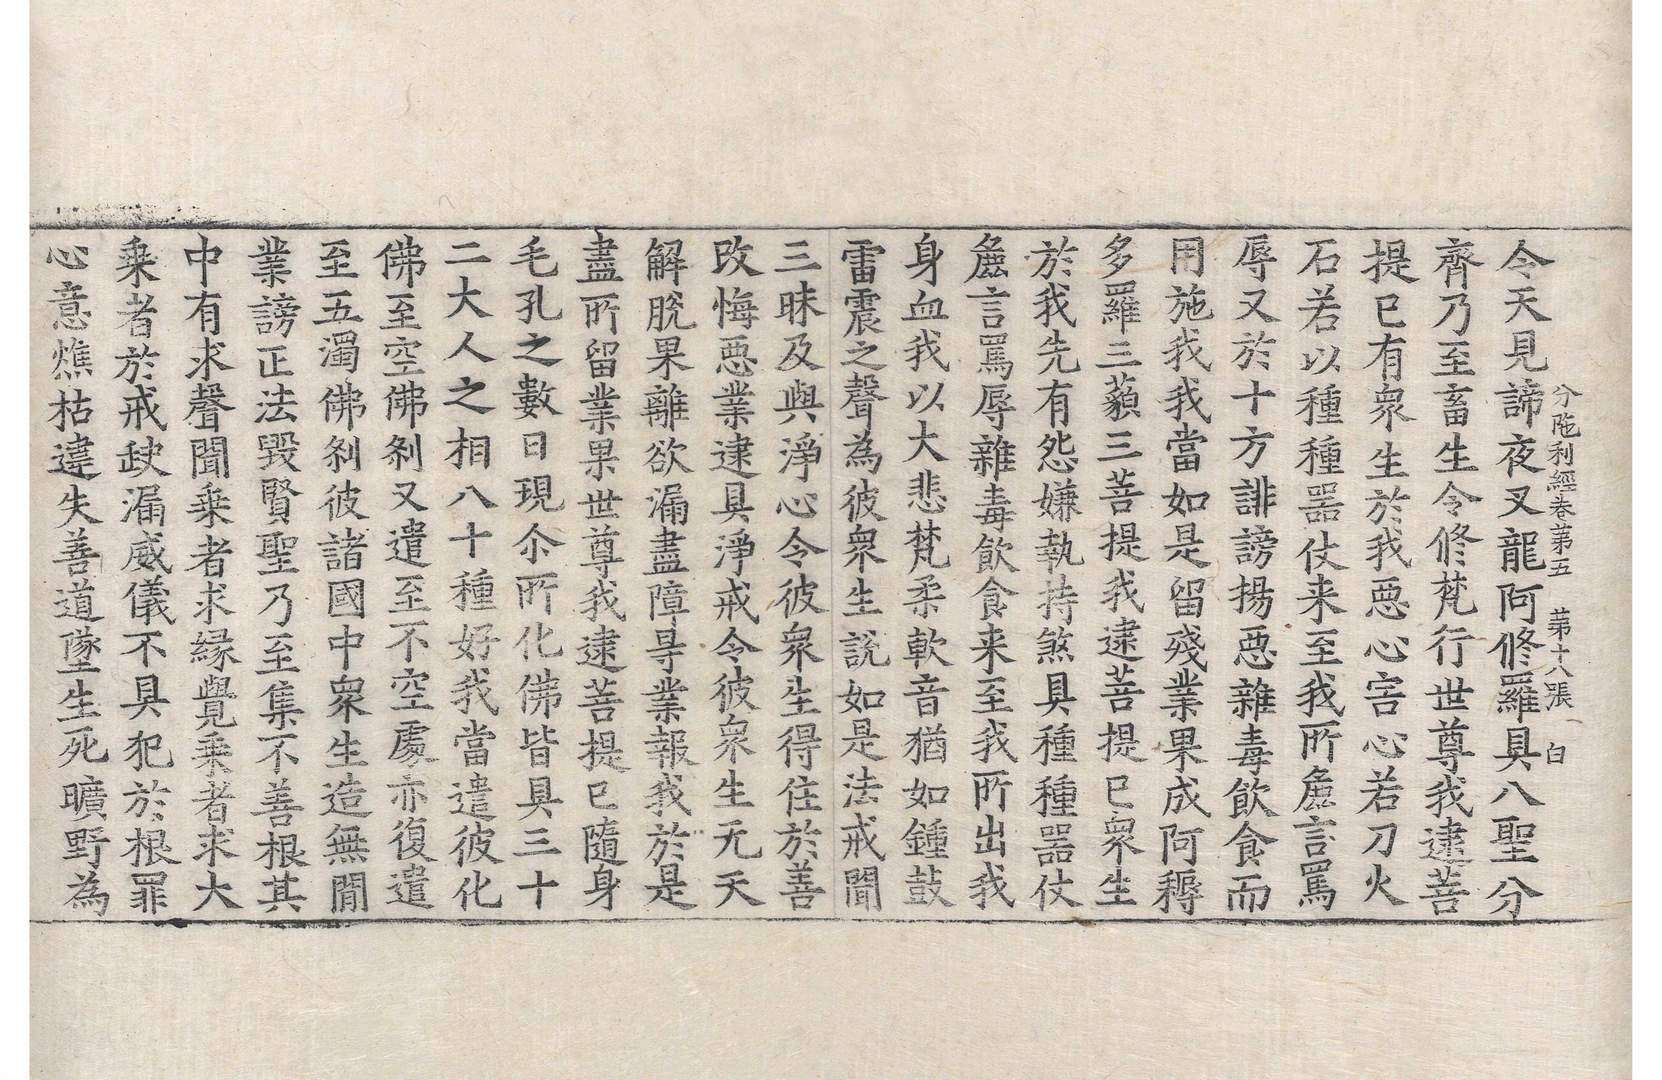 分陁利經卷第五　第十八張　白
令天見諦夜叉龍阿修羅具八聖分
齊乃至畜生令修梵行世尊我逮菩
提已有衆生於我惡心害心若刀火
石若以種種器仗来至我所麁言罵
辱又於十方誹謗揚惡雜毒飲食而
用施我我當如是留殘業果成阿耨
多羅三藐三菩提我逮菩提已衆生
於我先有怨嫌執持煞具種種器仗
麁言罵辱雜毒飲食来至我所出我
身血我以大悲梵柔軟音猶如鍾鼓
雷震之聲為彼衆生說如是法戒聞
三昧及與淨心令彼衆生得住於善
改悔惡業逮具淨戒令彼衆生无天
解脫果離欲漏盡障㝵業報我於是
盡所留業果世尊我逮菩提已隨身
毛孔之數日現尒所化佛皆具三十
二大人之相八十種好我當遣彼化
佛至空佛刹又遣至不空處亦復遣
至五濁佛刹彼諸國中衆生造無閒
業謗正法毀賢聖乃至集不善根其
中有求聲聞乗者求緣覺乗者求大
乗者於戒𡙇漏威儀不具犯於根罪
心意燋枯違失善道墜生死曠野為